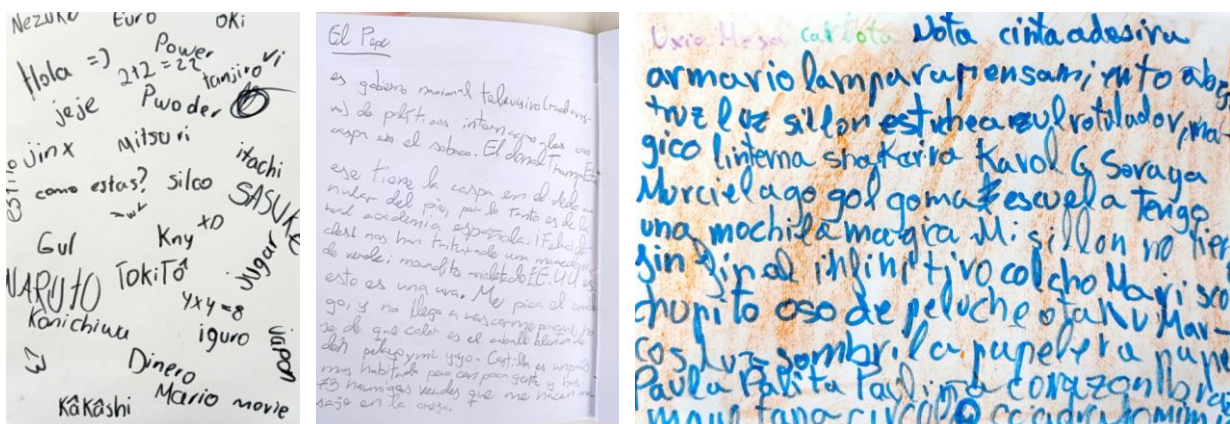 Nezuko Euro Oki
Hola =) Power Vi
2+2=22 tanjiro
jeje Pwoder
Jinx Mitsuri itachi
estilo como estas? silco SASUKE
XD
Gul Kny Jugar
NARUTO TokiTô
4x4=8
Kônichiwa iguro Japon
Dinero
Kâkâshi Mario movie
El Pape
es gobierno nacional televisivo
de políticas
caspa en el sobaco. El donal Trump
ese tiene la caspa en el dedo a-
nular del pie, por lo tanto es de la
real academia española. ¡Felicida-
des! nos han triturado una
de verde; maldito EE.UU
esto es una uva. Me pica el omb
go, y no llego a rascarme porque no
se de que color es el caballo blanco de
don pelayo mi yayo. Castilla es un país
muy habitado pero con poca gente y hay
73 hormigas verdes que me hacen ma
saje en la oreja.
Uxia Mesa carlota Nota cinta adesiva
armario lampara pensamiento abes
truz luz sillon estuche azul rotulador, ma-
gico linterna shakaira Karol G Soraya
Murcielago gol goma escuela Tengo
una mochila magica Mi sillon no tien
sin final infinitivo colcho Mari sa
chupito oso de peluche otaku Mar-
cos luz sombrila papelera
Paula Palita Paulina corazon libreta